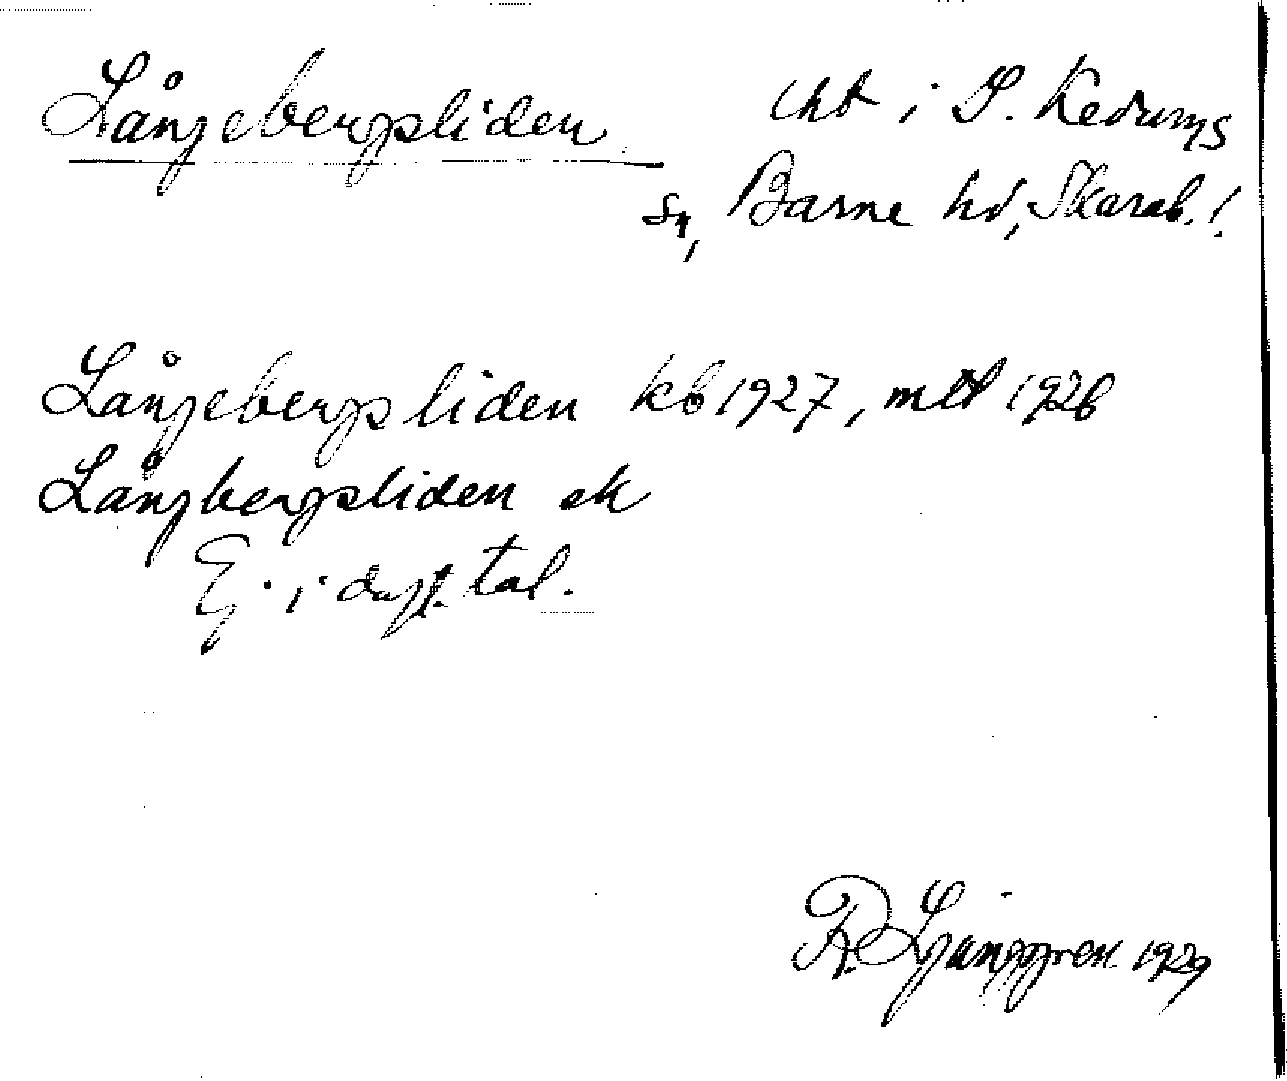 Långebergsliden
lht i S. Kedums
sn, Barne hd, Skarab. l.
Långebergsliden kb 1927, mtl 1926
Långbergsliden ek
Ej i dagl. tal.
R. Ljunggren 1929